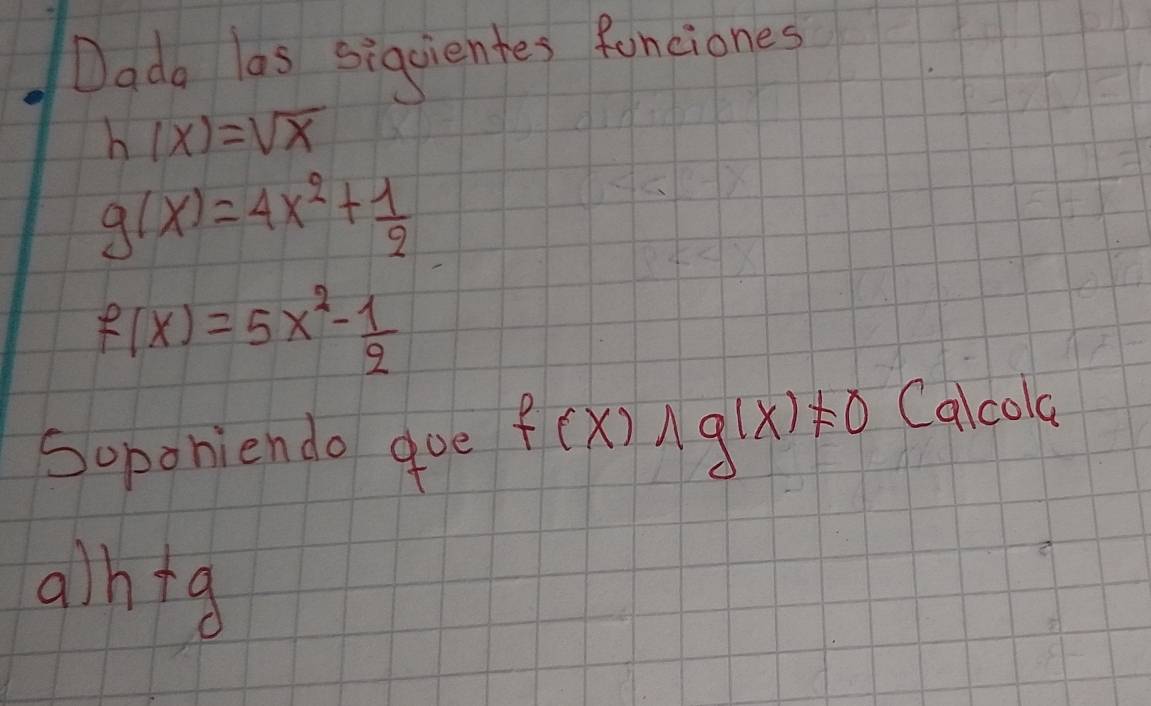 Dada las siguientes funciones
h(x)=√x
g(x)=4x²+1/2
f(x)=5x²-1/2
Suponiendo que f(x)∧g(x)≠0 Calcula
a)h+g